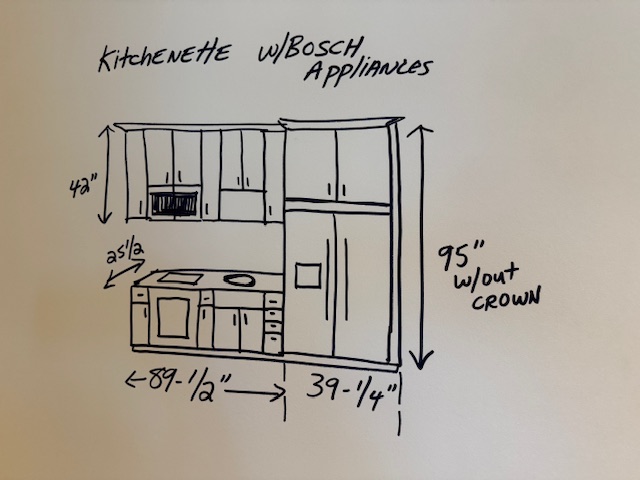 KitchENEttE W/BOSCH
AppliANCES
42"
25 1/2
95"
W/out
CROWN
89-1/2"
39-1/4"